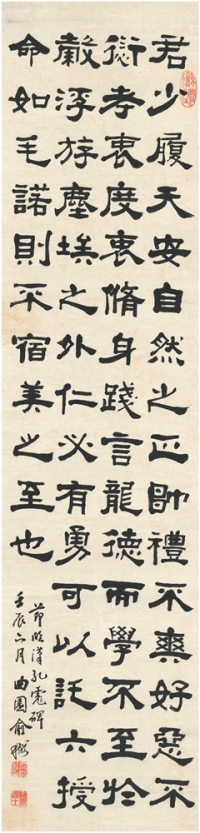 君少履天安自然之正帥禮不爽好惡不
衍孝衷度衷脩身踐言龍德而學不至於
穀浮游塵埃之外仁必有勇可以託六授
命如毛諾則不宿美之至也
節臨漢孔彪碑
壬辰六月曲園俞樾